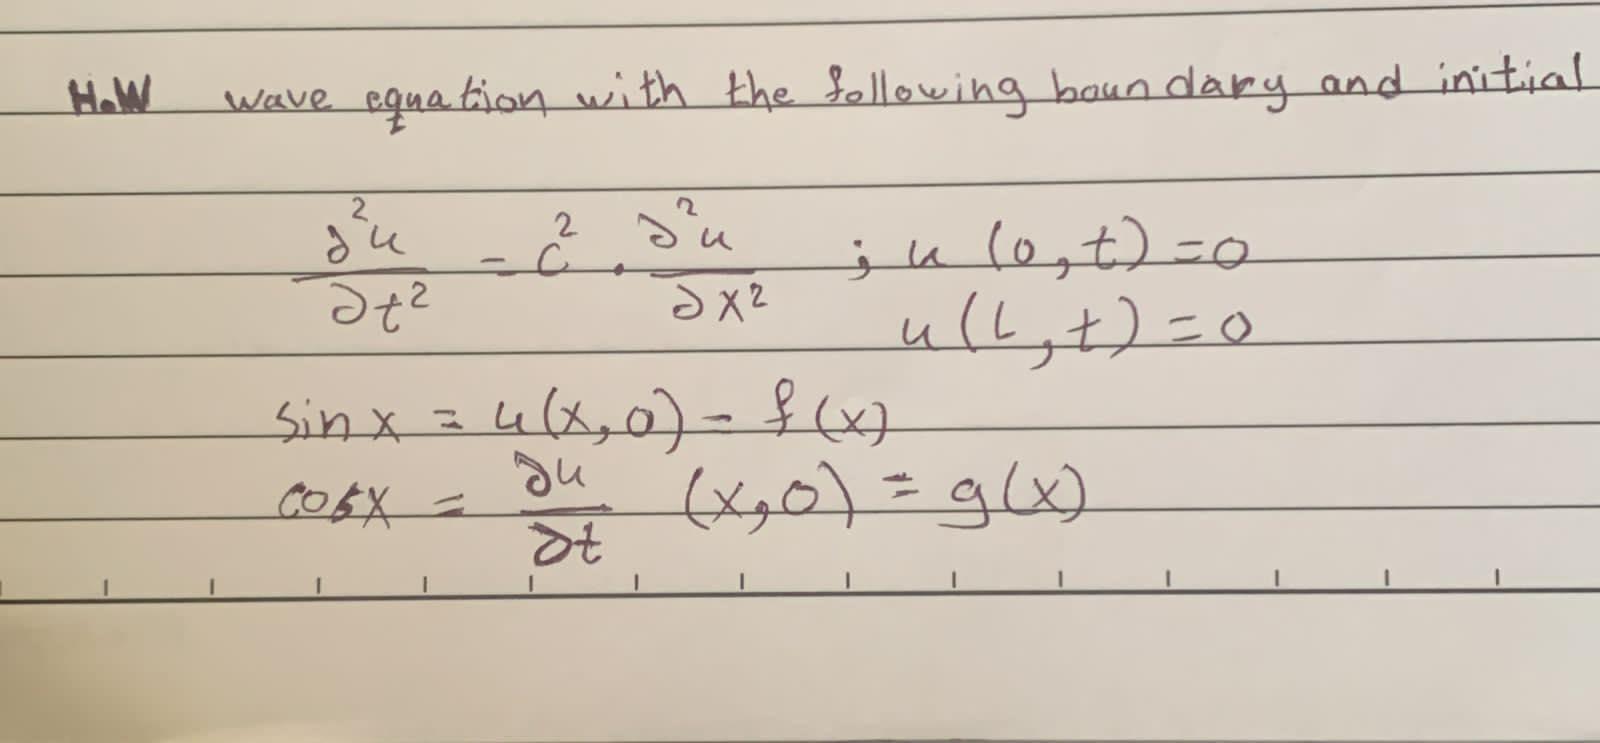 H.W wave equation with the following boundary and initial
∂²u/∂t² = c² . ∂²u/∂x² ; u (0,t) = 0
u(L,t) = 0
sin x = u(x,0) = f(x)
cosx = ∂u/∂t (x,0) = g(x)